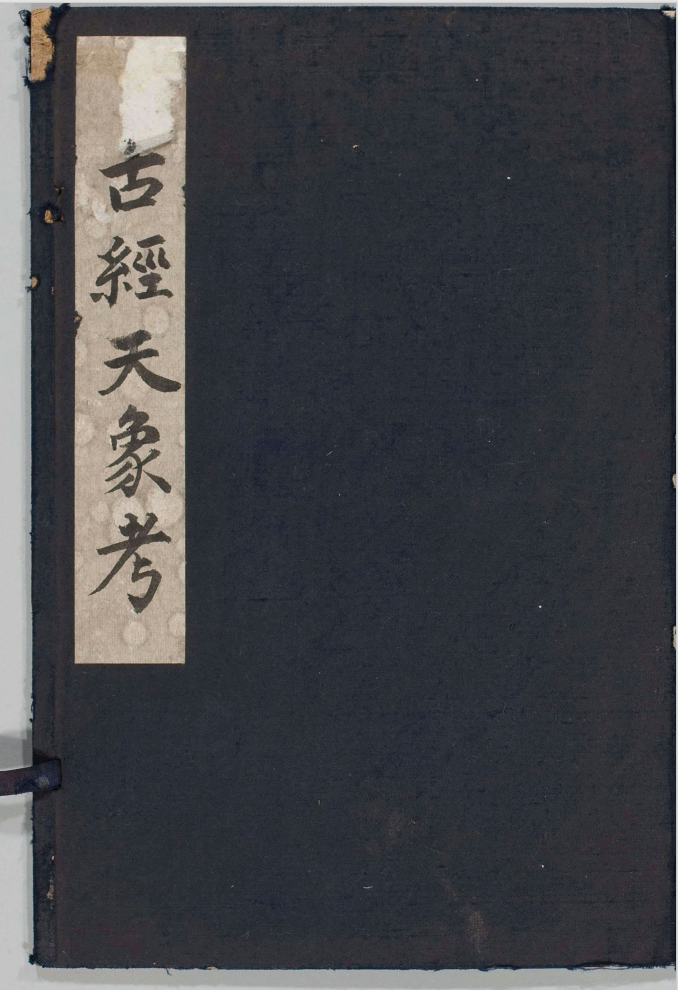 古經天象考